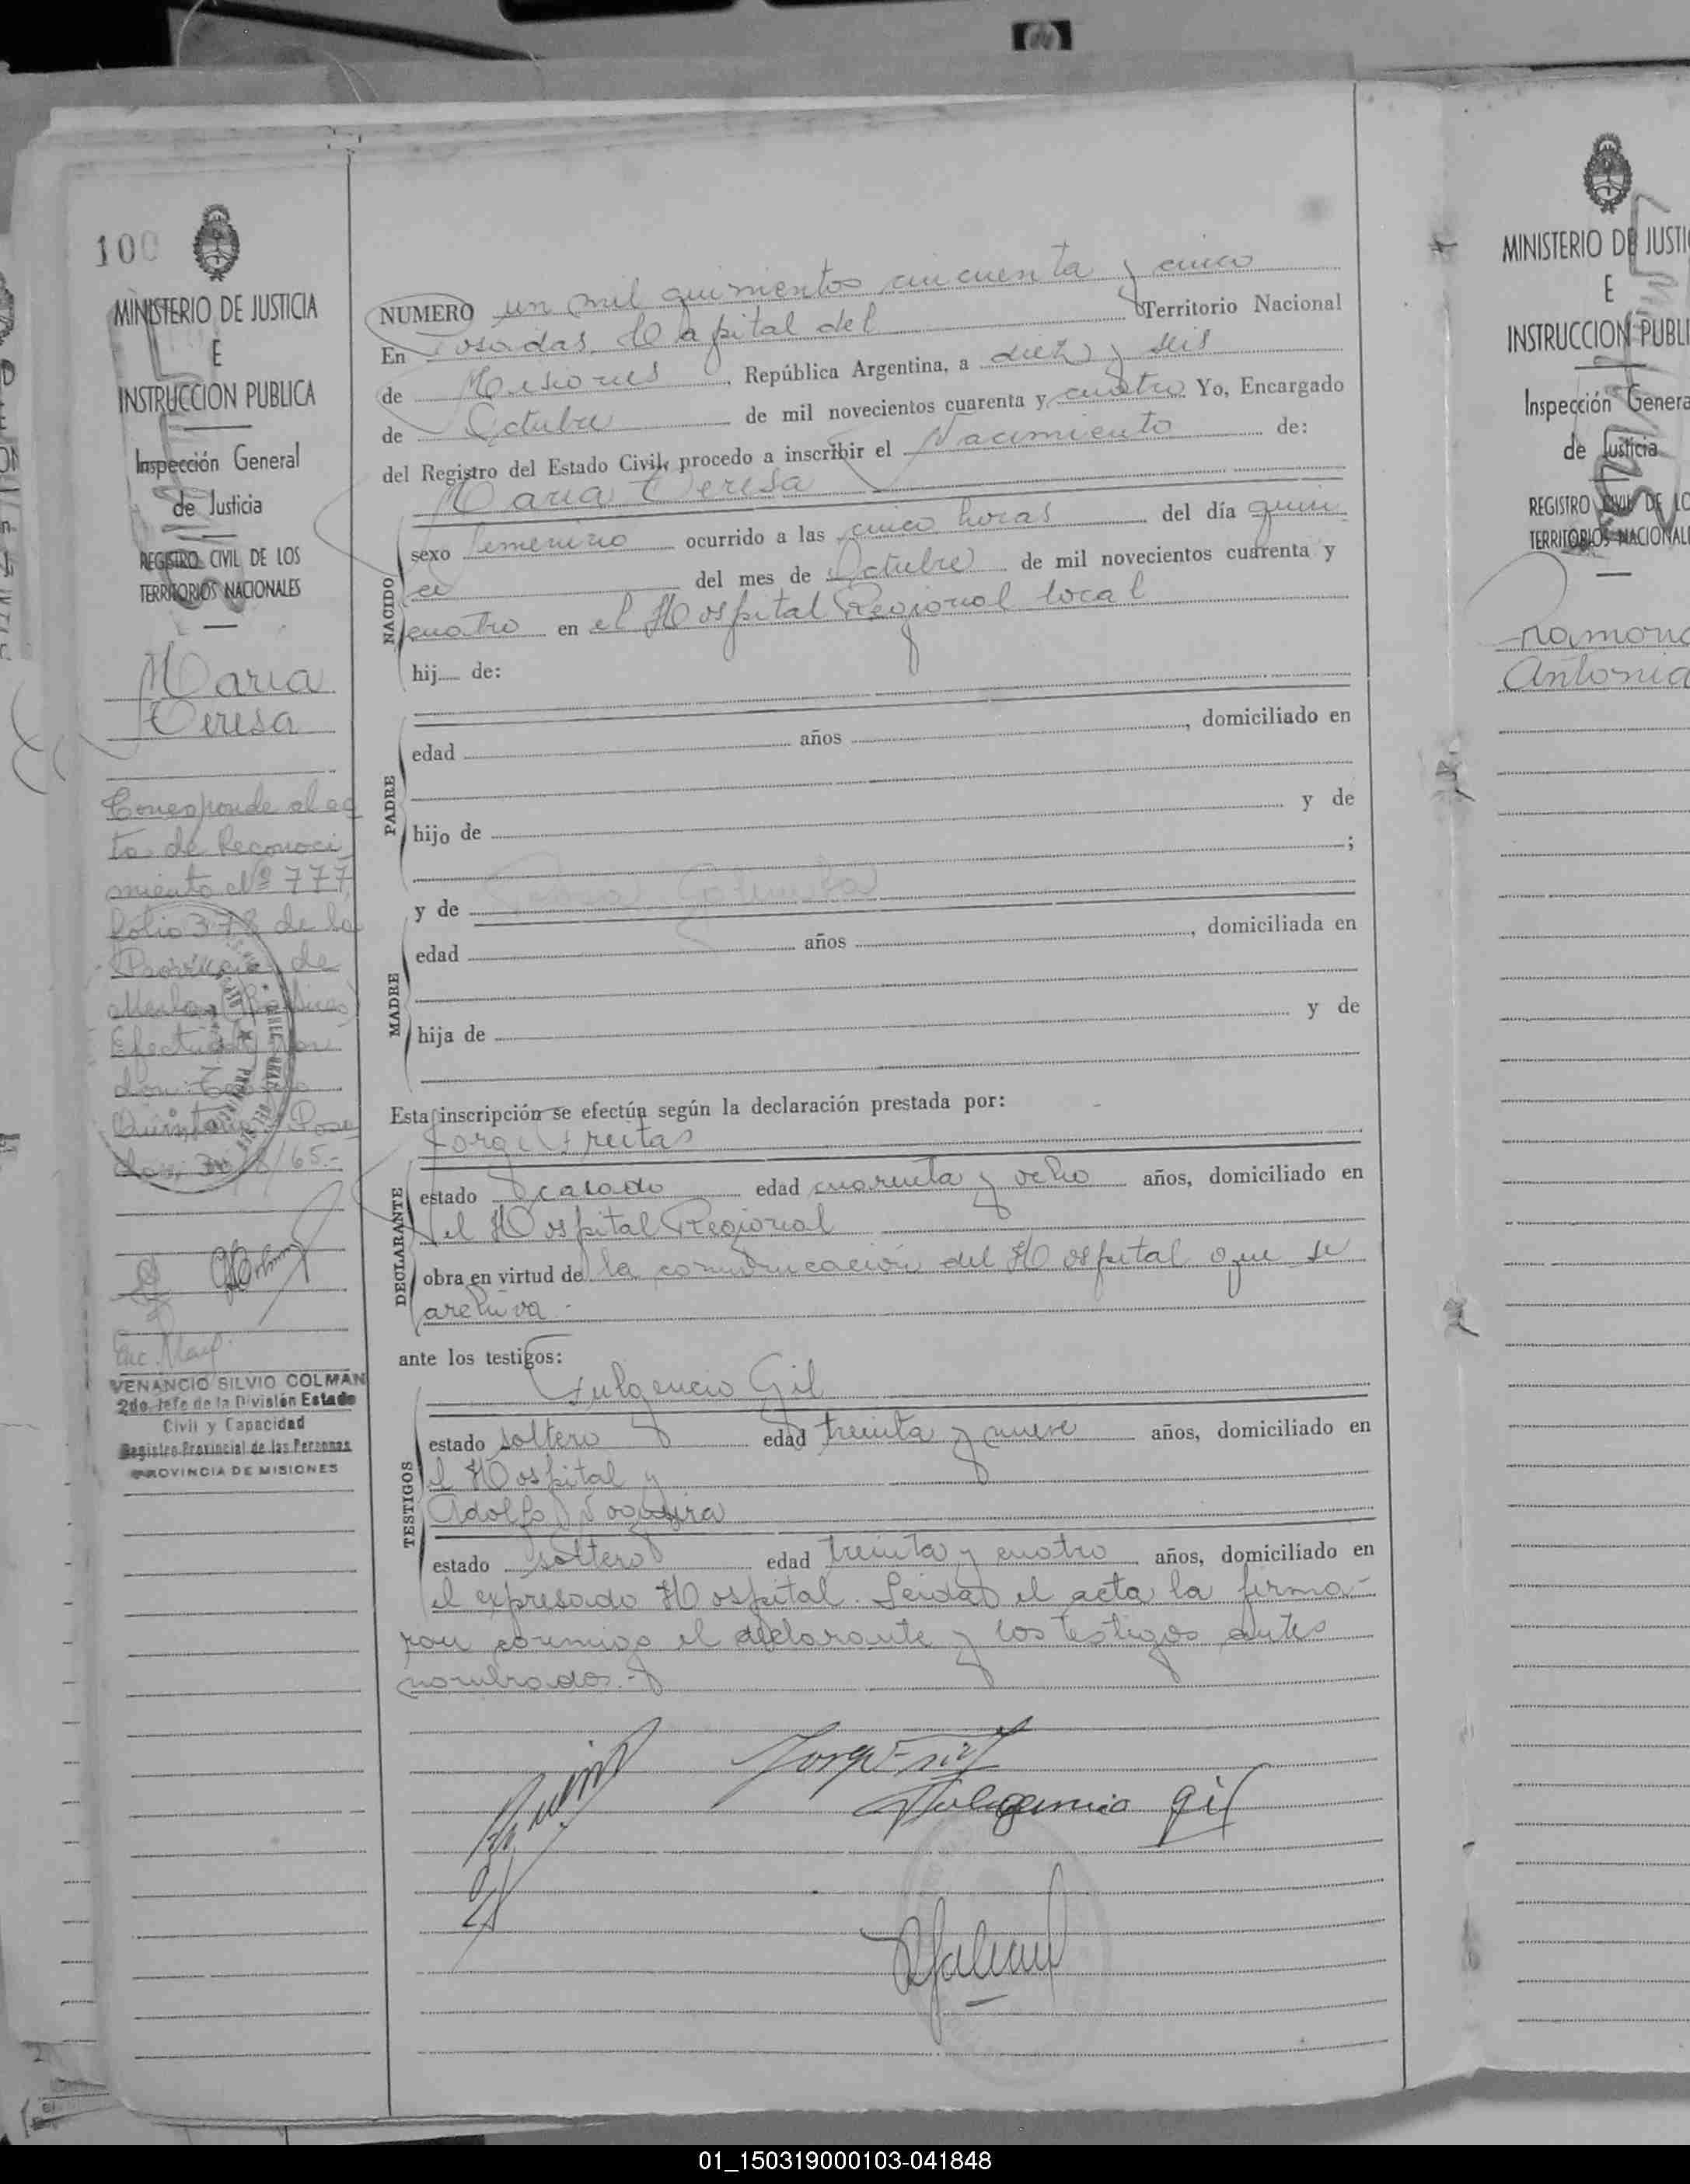 100
MINISTERIO DE JUSTICIA
E
INSTRUCCION PUBLICA
Inspección General
de Justicia
REGISTRO CIVIL DE LOS
TERRITORIOS NACIONALES
Maria
Teresa
Corresponde al ac
ta de Reconoci
miento Nº 777
folio 378 de la
de
Efectuado por
don
/65.-
VENANCIO SILVIO COLMAN
2do. Jefe de la División Estado
Civil y Capacidad
Registro Provincial de las Personas
PROVINCIA DE MISIONES
NUMERO un mil quinientos cincuenta y cinco
En Posadas, Capital del Territorio Nacional
de Misiones, República Argentina, a diez y seis
de Octubre de mil novecientos cuarenta y cuatro Yo, Encargado
del Registro del Estado Civil, procedo a inscribir el Nacimiento de:
Maria Teresa
NACIDO
sexo femenino ocurrido a las cinco horas del día quin
ce del mes de Octubre de mil novecientos cuarenta y
cuatro en el Hospital Regional local
hij de:
PADRE
edad años, domiciliado en
hijo de y de
;
y de
MADRE
edad años, domiciliada en
hija de y de
Esta inscripción se efectúa según la declaración prestada por:
Jorge Freitas
DECLARANTE
estado casado edad cuarenta y ocho años, domiciliado en
el Hospital Regional
obra en virtud de la comunicación del Hospital que se
archiva.
ante los testigos:
Fulgencio Gil
TESTIGOS
estado soltero edad treinta y nueve años, domiciliado en
el Hospital y
Adolfo
estado soltero edad treinta y cuatro años, domiciliado en
el expresado Hospital. Leida el acta la firma-
ron conmigo el declarante y los testigos antes
nombrados.-
gil
MINISTERIO DE JUSTI
E
INSTRUCCION PUBLI
Inspección Genera
de Justicia
REGISTRO CIVIL DE LO
TERRITORIOS NACIONALE
Ramona
Antonia
01_150319000103-041848